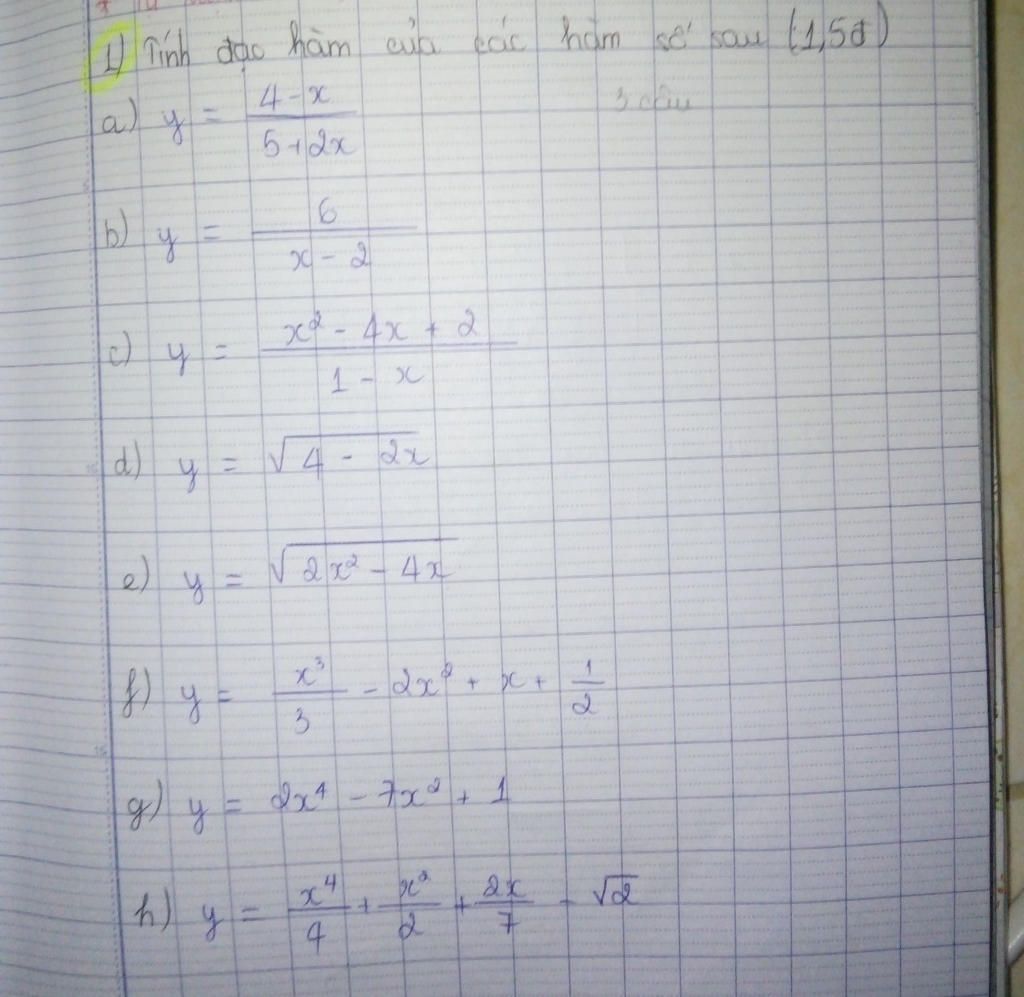 1) Tính đạo hàm của các hàm số sau (1,5đ)
3 câu
a) y = (4 - x)/(5 + 2x)
b) y = 6/(x - 2)
c) y = (x² - 4x + 2)/(1 - x)
d) y = √(4 - 2x)
e) y = √(2x² - 4x)
f) y = x³/3 - 2x² + x + 1/2
g) y = 2x⁴ - 7x² + 1
h) y = x⁴/4 + x²/2 + 2x/7 - √2